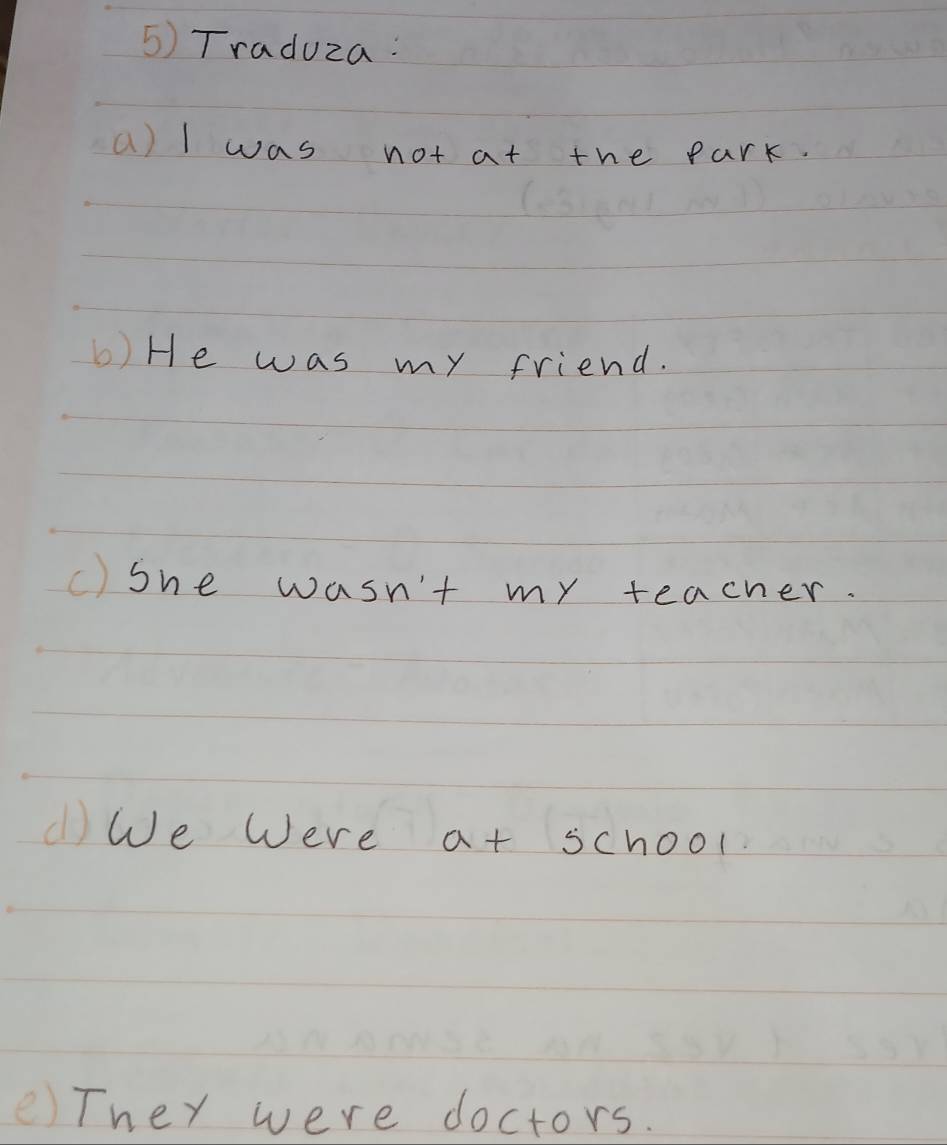 5) Traduza:
a) I was not at the park.
b) He was my friend.
c) She wasn't my teacher.
d) We were at school.
e) They were doctors.